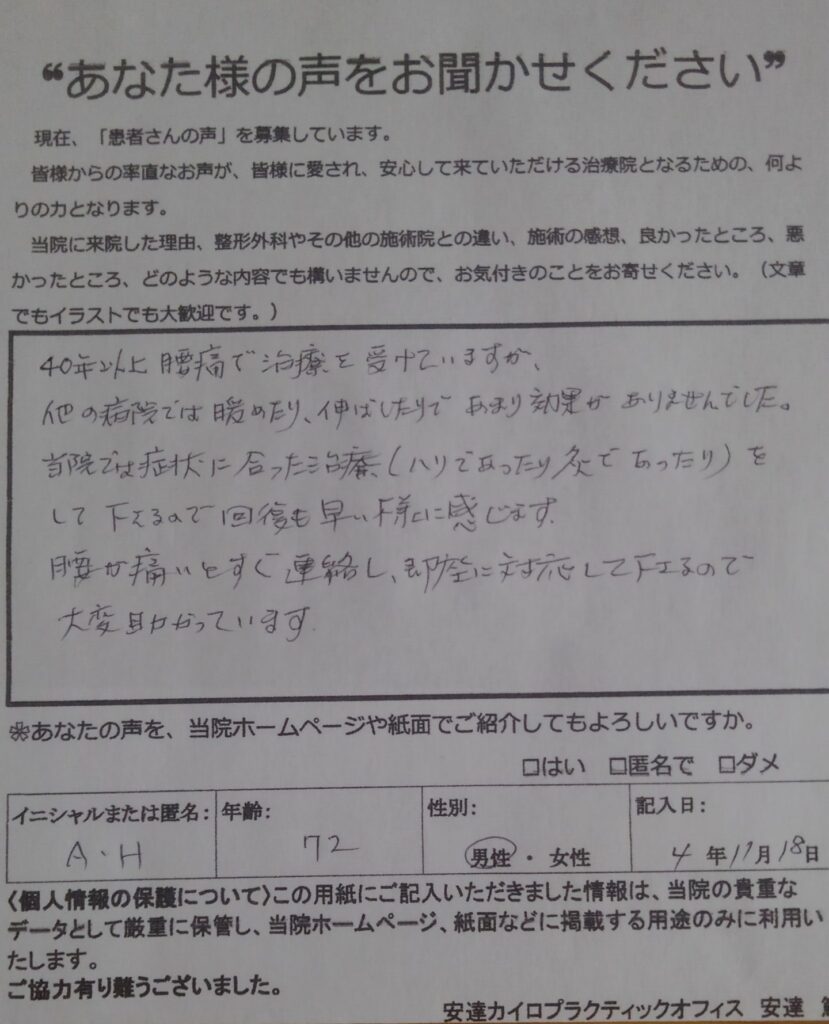 “あなた様の声をお聞かせください”
現在、「患者さんの声」を募集しています。
皆様からの率直なお声が、皆様に愛され、安心して来ていただける治療院となるための、何よ
りの力となります。
当院に来院した理由、整形外科やその他の施術院との違い、施術の感想、良かったところ、悪
かったところ、どのような内容でも構いませんので、お気付きのことをお寄せください。（文章
でもイラストでも大歓迎です。）
40年以上腰痛で治療を受けていますが、
他の病院では暖めたり、伸ばしたりであまり効果がありませんでした。
当院では症状に合った治療(ハリであったり灸であったり)を
して下さるので回復も早い様に感じます.
腰が痛いとすぐ連絡し、即座に対応して下さるので
大変助かっています.
❀あなたの声を、当院ホームページや紙面でご紹介してもよろしいですか。
□はい □匿名で □ダメ
イニシャルまたは匿名: 年齢: 性別: 記入日:
A・H 72 男性 ・ 女性 4年11月18日
〈個人情報の保護について〉この用紙にご記入いただきました情報は、当院の貴重な
データとして厳重に保管し、当院ホームページ、紙面などに掲載する用途のみに利用い
たします。
ご協力有り難うございました。
安達カイロプラクティックオフィス 安達